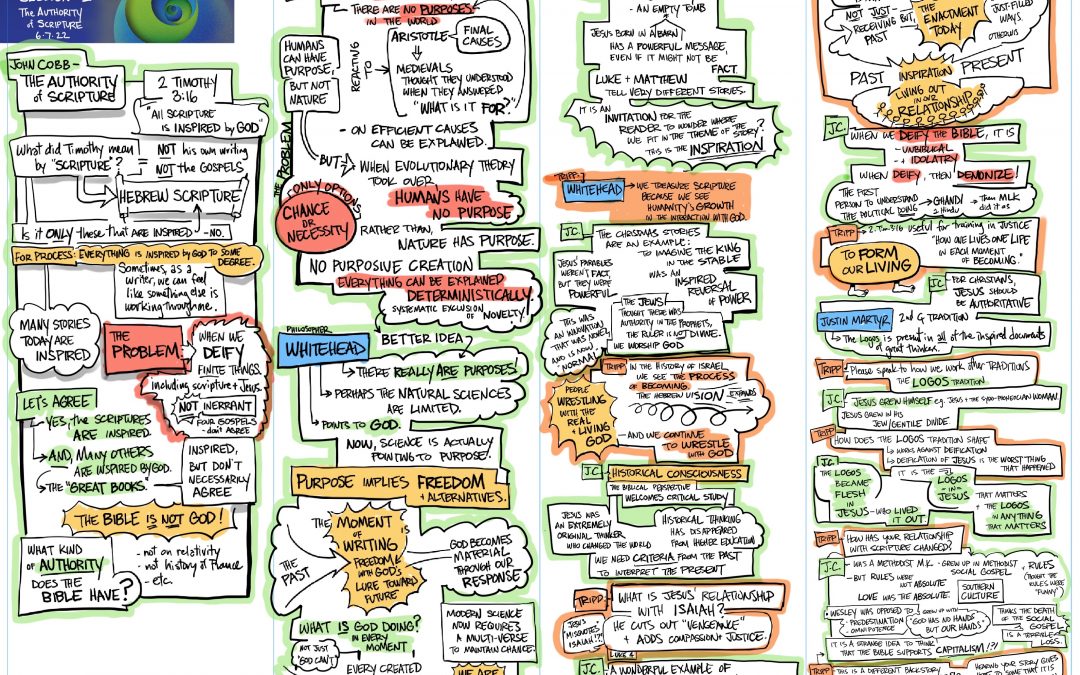 THE AUTHORITY
of SCRIPTURE
6.7.22
JOHN COBB -
THE AUTHORITY
of SCRIPTURE
2 TIMOTHY
3:16
"All SCRIPTURE
is INSPIRED by GOD"
What did Timothy mean
by "SCRIPTURE"?
= NOT his own writing
= NOT the GOSPELS
HEBREW SCRIPTURE
Is it ONLY these that are INSPIRED - NO.
FOR PROCESS: EVERYTHING is INSPIRED by GOD to SOME
DEGREE.
Sometimes, as a
writer, we can feel
like something else is
working through me.
MANY STORIES
TODAY ARE
INSPIRED
THE
PROBLEM
WHEN WE
DEIFY
FINITE THINGS.
including scripture + Jesus.
NOT INERRANT
FOUR GOSPELS
- don't AGREE
LET'S AGREE
YES, THE SCRIPTURES
ARE INSPIRED.
AND, MANY OTHERS
ARE INSPIRED by GOD.
THE "GREAT BOOKS."
INSPIRED,
BUT DON'T
NECESSARILY
AGREE
THE BIBLE IS NOT GOD!
WHAT KIND
of AUTHORITY
DOES THE
BIBLE HAVE?
- not on relativity
- not history of France
- etc.
THERE ARE NO PURPOSES
IN THE WORLD
HUMANS
CAN HAVE
PURPOSE,
BUT NOT
NATURE
REACTING
TO
ARISTOTLE
FINAL
CAUSES
MEDIEVALS
THOUGHT THEY UNDERSTOOD
WHEN THEY ANSWERED
"WHAT IS IT FOR?"
THE PROBLEM
- ON EFFICIENT CAUSES
CAN BE EXPLAINED.
BUT
WHEN EVOLUTIONARY THEORY
TOOK OVER
HUMANS HAVE
NO PURPOSE
ONLY OPTIONS
CHANCE
OR
NECESSITY
RATHER THAN,
NATURE HAS PURPOSE.
NO PURPOSIVE CREATION
EVERYTHING CAN BE EXPLAINED
DETERMINISTICALLY.
SYSTEMATIC EXCLUSION of NOVELTY.
PHILOSOPHER
WHITEHEAD
BETTER IDEA
THERE REALLY ARE PURPOSES
PERHAPS THE NATURAL SCIENCES
ARE LIMITED.
POINTS TO GOD.
NOW, SCIENCE IS ACTUALLY
POINTING TO PURPOSE.
PURPOSE IMPLIES FREEDOM
+ ALTERNATIVES.
THE
MOMENT
of
WRITING
IS
FREEDOM
with GOD'S
LURE TOWARD
FUTURE
THE
PAST
GOD BECOMES
MATERIAL
THROUGH OUR
RESPONSE
WHAT IS GOD DOING?
IN EVERY
MOMENT
NOT JUST
"GOD CAN'T"
MODERN SCIENCE
NOW REQUIRES
A MULTI-VERSE
TO MAINTAIN CHANCE.
EVERY CREATED
WE ARE
- AN EMPTY TOMB
JESUS BORN IN A BARN
HAS A POWERFUL MESSAGE
EVEN IF IT MIGHT NOT BE
FACT.
LUKE + MATTHEW
TELL VERY DIFFERENT STORIES.
IT IS AN
INVITATION FOR THE
READER TO WONDER WHERE
WE FIT IN THE THEME OF THE
STORY?
THIS IS THE INSPIRATION
TRIPP:
WHITEHEAD
WE TREASURE SCRIPTURE
BECAUSE WE SEE
HUMANITY'S GROWTH
IN THE INTERACTION WITH GOD.
J.C.
THE CHRISTMAS STORIES
ARE AN EXAMPLE:
TO IMAGINE THE KING
IN THE STABLE
WAS AN
INSPIRED
REVERSAL
of POWER
JESUS PARABLES
WEREN'T FACT,
BUT THEY WERE
POWERFUL
THE JEWS
THOUGHT THERE WAS
AUTHORITY IN THE PROPHETS,
THE RULER IS NOT DIVINE.
WE WORSHIP GOD
THIS WAS
AN INNOVATION
THAT WAS NOVEL
AND IS NOW
NORMAL
TRIPP
IN THE HISTORY OF ISRAEL,
WE SEE THE PROCESS
OF BECOMING.
THE HEBREW VISION EXPANDS
PEOPLE
WRESTLING
WITH THE
REAL
+ LIVING
GOD
AND WE CONTINUE
TO WRESTLE
with GOD
J.C.
HISTORICAL CONSCIOUSNESS
THE BIBLICAL PERSPECTIVE
WELCOMES CRITICAL STUDY
JESUS WAS
AN EXTREMELY
ORIGINAL THINKER
WHO CHANGED THE WORLD
HISTORICAL THINKING
HAS DISAPPEARED
FROM HIGHER EDUCATION
WE NEED CRITERIA FROM THE PAST
TO INTERPRET THE PRESENT
TRIPP
WHAT IS JESUS' RELATIONSHIP
WITH ISAIAH?
JESUS
"MISQUOTES"
ISAIAH?!?
HE CUTS OUT "VENGEANCE"
+ ADDS COMPASSION + JUSTICE.
LUKE 4
J.C.
A WONDERFUL EXAMPLE OF
NOT JUST
RECEIVING BUT,
PAST
THE
ENACTMENT
TODAY
JUST-FILLED
WAYS.
OTHERWISE
PAST
INSPIRATION
PRESENT
LIVING OUT
IN OUR
RELATIONSHIP
J.C.
WHEN WE DEIFY THE BIBLE, IT IS
- UNBIBLICAL
- + IDOLATRY
WHEN DEIFY, THEN DEMONIZE!
THE FIRST
PERSON TO UNDERSTAND
THE POLITICAL DOING
GHANDI
Then MLK
did it as
TRIPP
2-Tim-3:16 useful for training in JUSTICE
"HOW ONE LIVES ONE'S LIFE
IN EACH MOMENT
OF BECOMING."
TO FORM
OUR LIVING
J.C.
FOR CHRISTIANS,
JESUS SHOULD
BE AUTHORITATIVE
JUSTIN MARTYR
2nd C TRADITION
The Logos is present in all of the inspired documents
of great thinkers.
TRIPP
Please speak to how we work other TRADITIONS.
THE LOGOS TRADITION
J.C.
JESUS GREW HIMSELF e.g. JESUS + THE SYRO-PHOENICIAN WOMAN.
JESUS GREW IN HIS
JEW/GENTILE DIVIDE.
TRIPP
HOW DOES THE LOGOS TRADITION SHAPE
WORKS AGAINST DEIFICATION
DEIFICATION OF JESUS IS THE WORST THING
THAT HAPPENED
J.C.
THE LOGOS
BECAME
FLESH
IN
JESUS - WHO LIVED
IT OUT.
IT IS THE
LOGOS
- IN -
JESUS
THAT MATTERS
+ THE LOGOS
IN ANYTHING
THAT MATTERS
TRIPP
HOW HAS YOUR RELATIONSHIP
WITH SCRIPTURE CHANGED?
J.C.
- WAS A METHODIST M.K. - GREW UP IN METHODIST
SOCIAL GOSPEL
- BUT RULES WERE
NOT ABSOLUTE
LOVE WAS THE ABSOLUTE.
SOUTHERN
CULTURE
RULES
THOUGHT THE
RULES WERE
"FUNNY"
WESLEY WAS OPPOSED TO
PREDESTINATION
OMNIPOTENCE
GREW UP WITH
"GOD HAS NO HANDS
BUT OUR HANDS"
THINKS THE DEATH
OF THE SOCIAL
GOSPEL
IS A TERRIBLE
LOSS.
IT IS A STRANGE IDEA TO THINK
THAT THE BIBLE SUPPORTS CAPITALISM!?!
TRIPP
THIS IS A DIFFERENT BACKSTORY
HEARING YOUR STORY GIVES